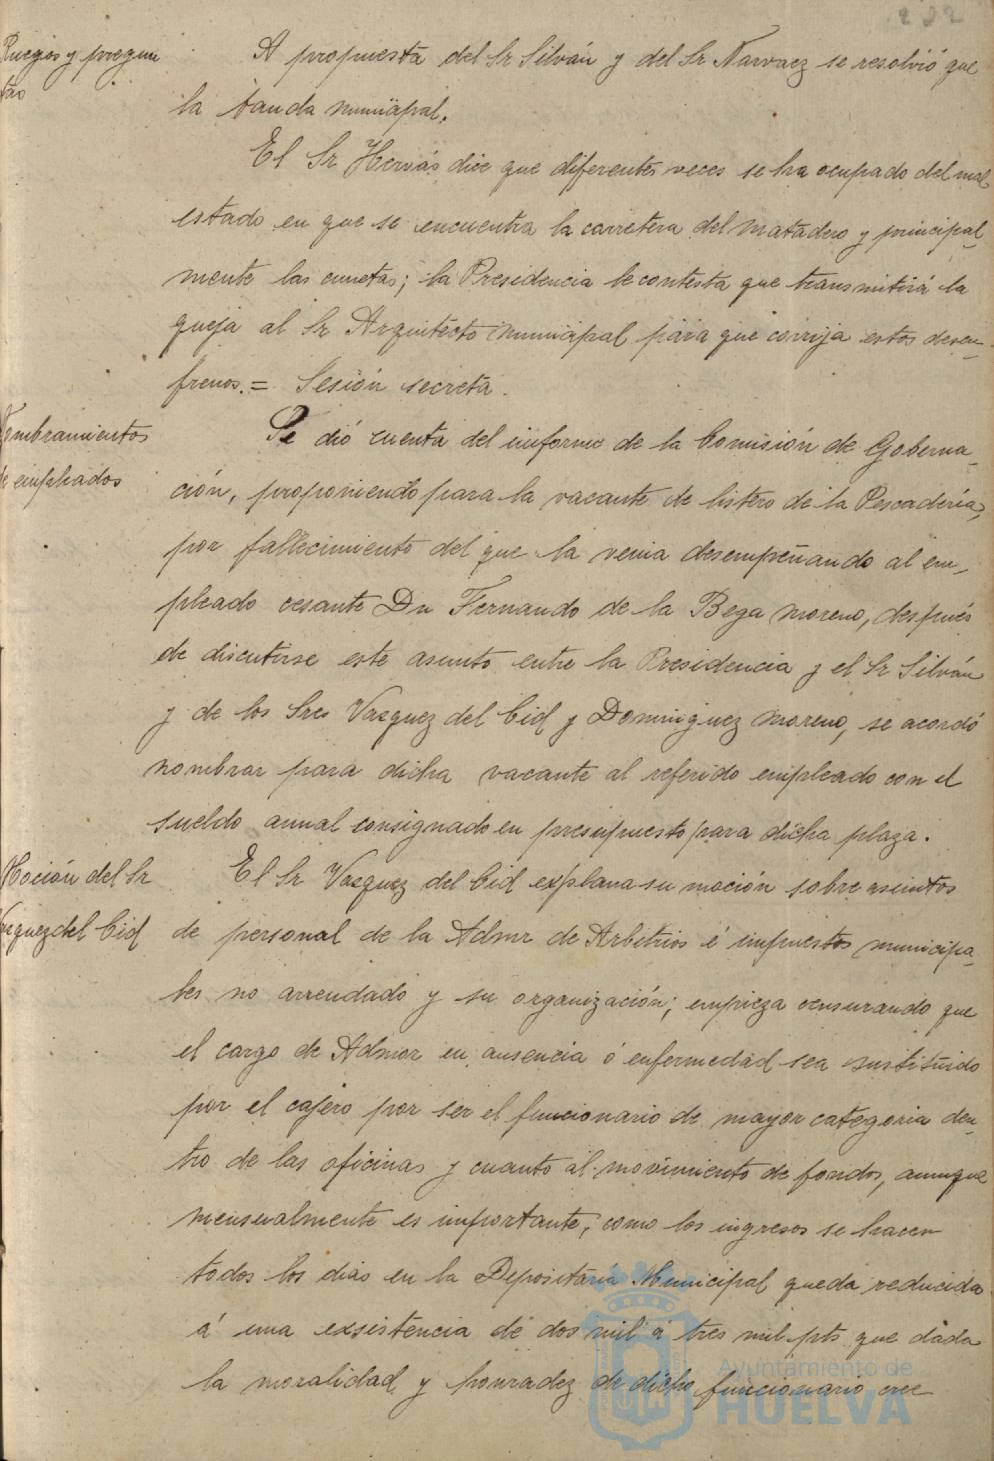 222
Ruegos y pregun
tas
A propuesta del Sr Silván y del Sr Narvaez se resolvió que
la banda municipal.
El Sr Hervás dice que diferentes veces se ha ocupado del mal
estado en que se encuentra la carretera del matadero y principal-
mente las cunetas; la Presidencia le contesta que transmitirá la
queja al Sr Arquitecto municipal para que corrija estos desen-
frenos. = Sesión secreta.
Nombramientos
de empleados
Se dió cuenta del informe de la Comisión de Goberna-
ción, proponiendo para la vacante de listero de la Pescadería,
por fallecimiento del que la venia desempeñando al em-
pleado cesante Dn Fernando de la Bega Moreno, después
de discutirse este asunto entre la Presidencia y el Sr Silván
y de los Sres Vazquez del Cid y Dominguez Moreno, se acordó
nombrar para dicha vacante al referido empleado con el
sueldo anual consignado en presupuesto para dicha plaza.
Moción del Sr
Vazquez del Cid
El Sr Vazquez del Cid explana su moción sobre asuntos
de personal de la Admr de Arbitrios é impuestos municipa-
les no arrendado y su organización; empieza censurando que
el cargo de Admor en ausencia ó enfermedad sea sustituido
por el cajero por ser el funcionario de mayor categoria den-
tro de las oficinas y cuanto al movimiento de fondos, aunque
mensualmente es importante, como los ingresos se hacen
todos los dias en la Depositaría Municipal queda reducida
á una exsistencia de dos mil á tres mil pts que dada
la moralidad y honradez de dicho funcionario cree
Ayuntamiento de
HUELVA